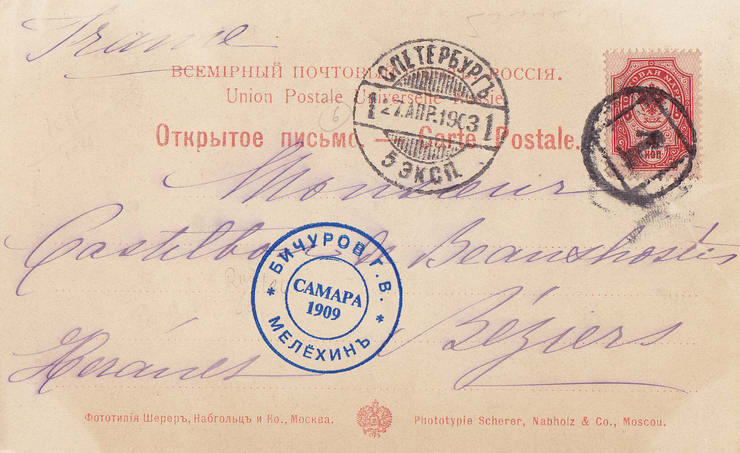 France
ВСЕМІРНЫЙ ПОЧТОВЫЙ РОССІЯ.
Union Postale Universelle Russie
Открытое письмо — Carte Postale.
С.ПЕТЕРБУРГЪ
1 27.АПР.1903 1
5 ЭКСП.
Monsieur
de Beauxhostes
Béziers
Hérault
БИЧУРОВ Г.В.
САМАРА
1909
* МЕЛЁХИНЪ *
Фототипія Шереръ, Набгольцъ и Ко., Москва.
Phototypie Scherer, Nabholz & Co., Moscou.